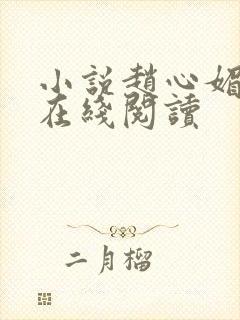 小說趙心媚
在綫閱讀
二月榴